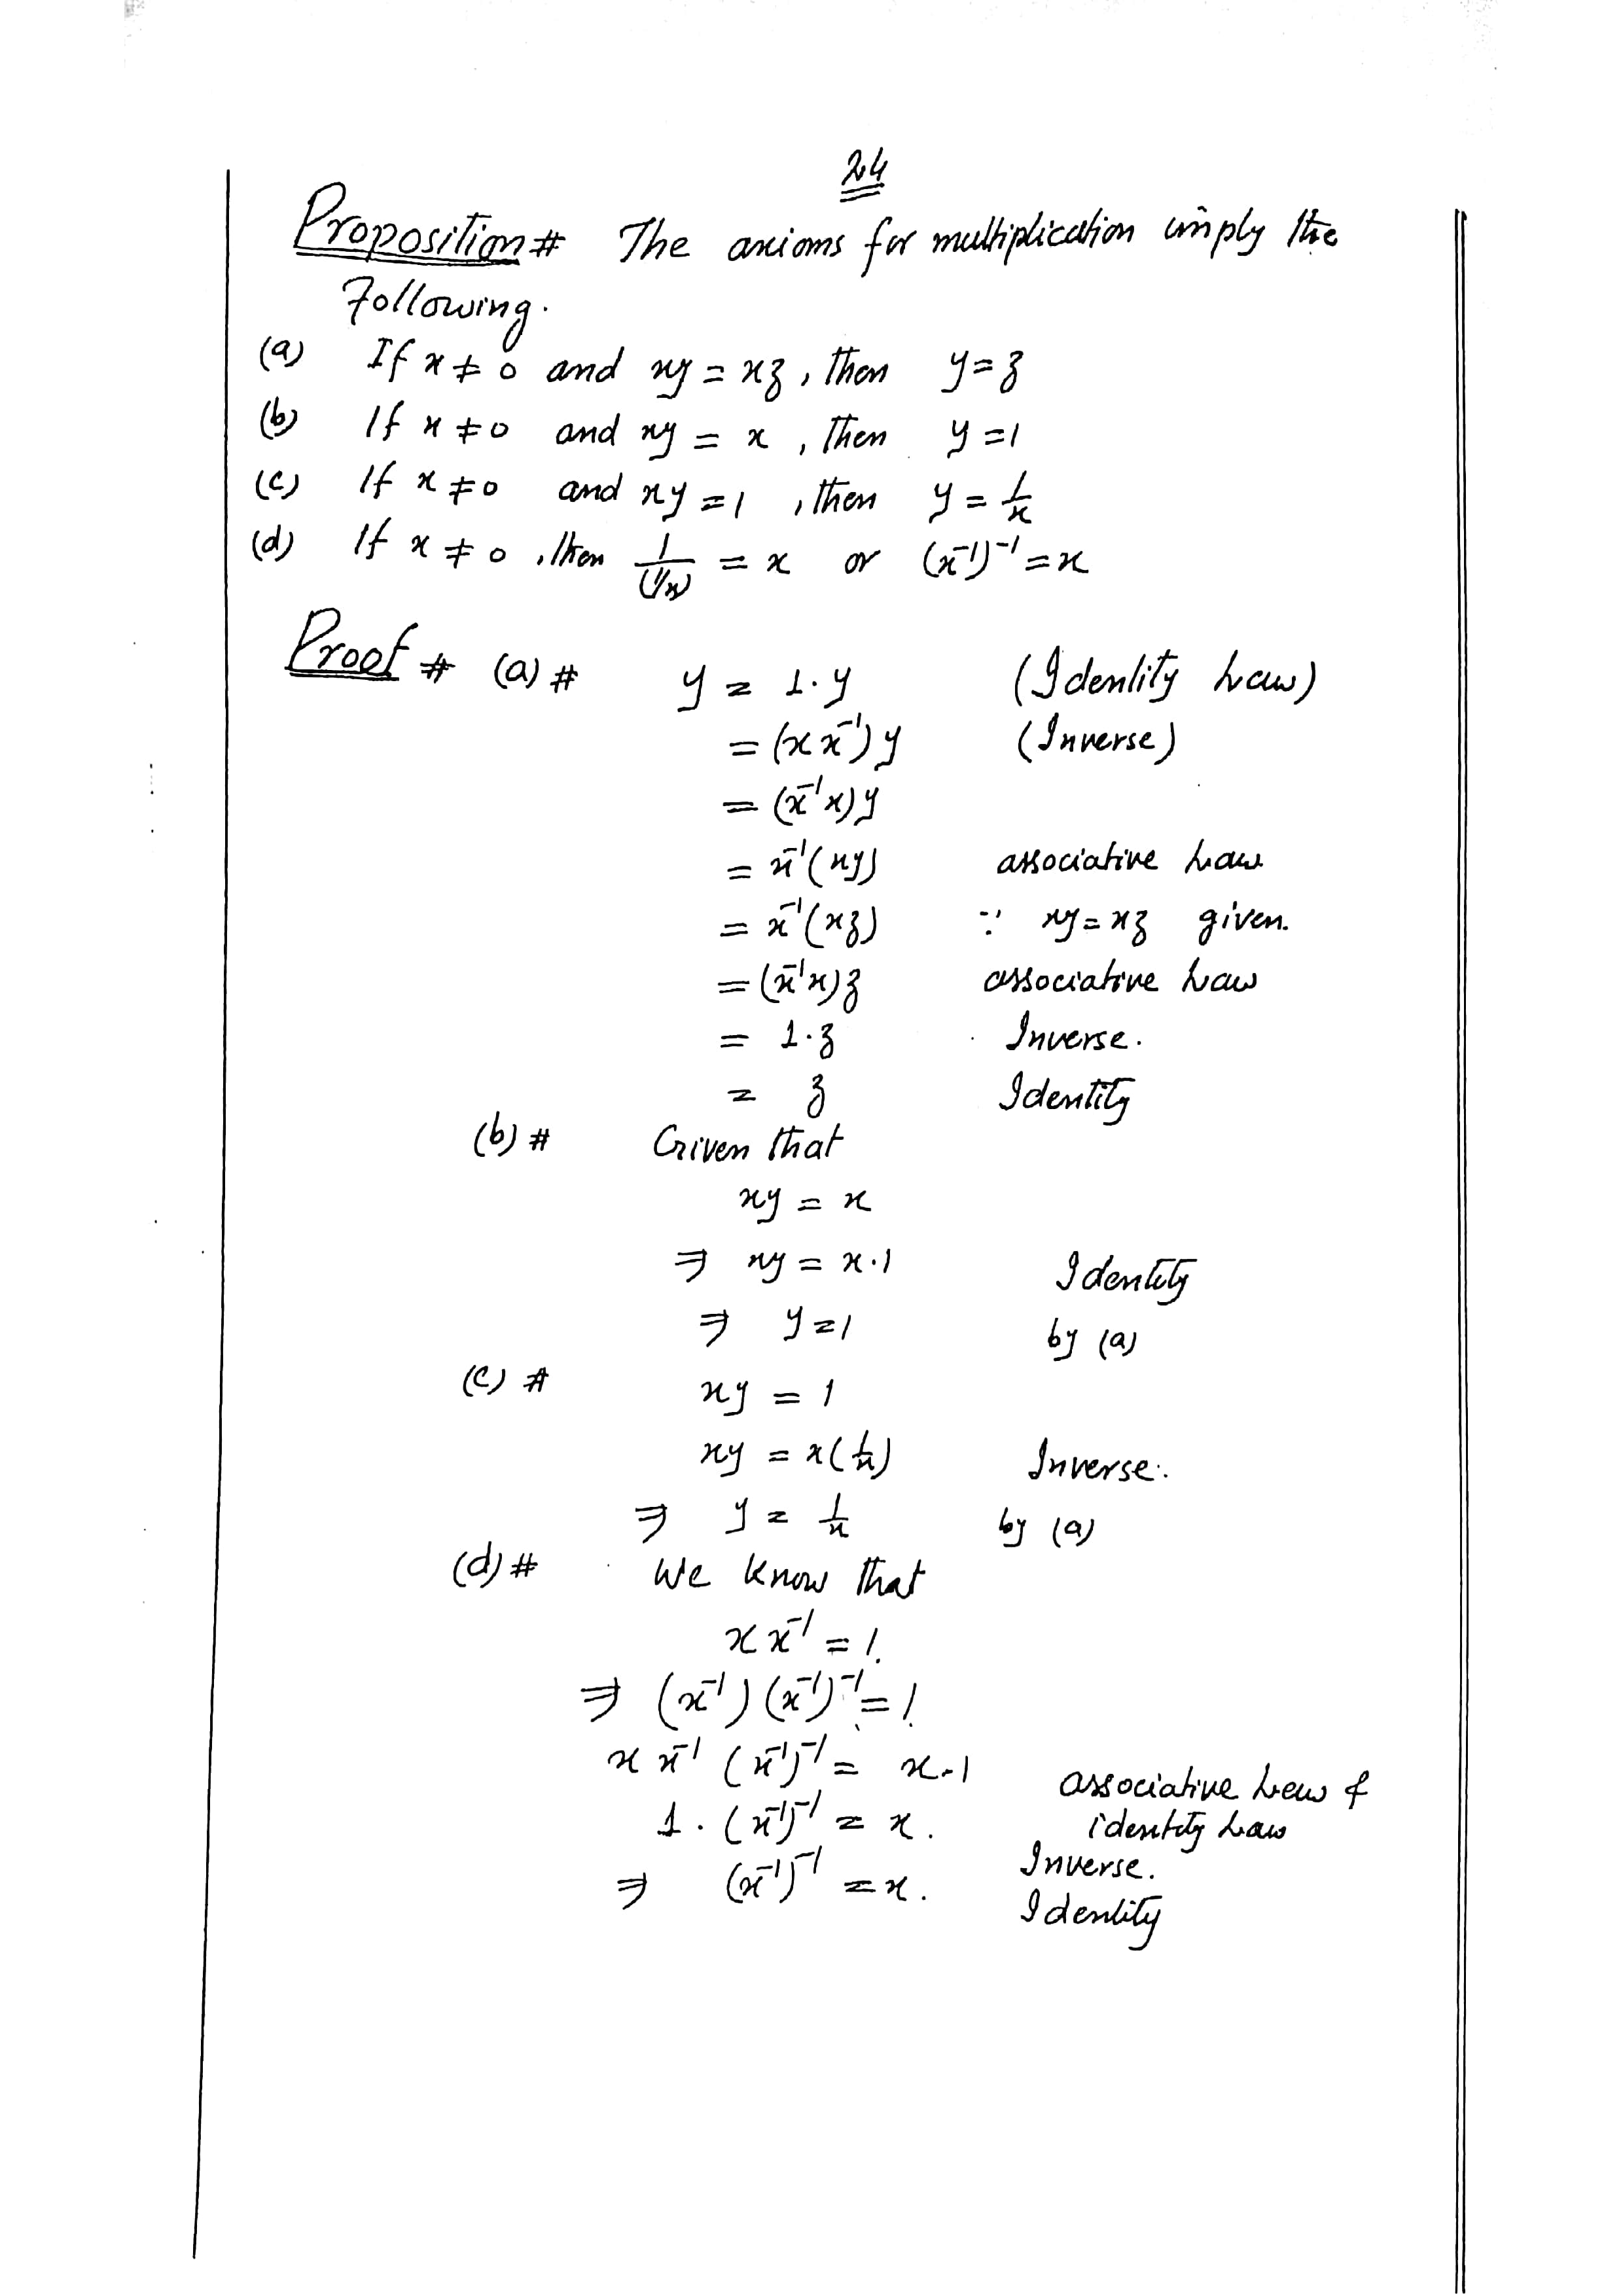 24
Proposition # The axioms for multiplication imply the
Following.
(a) If x ≠ 0 and xy = xz, then y = z
(b) If x ≠ 0 and xy = x, then y = 1
(c) If x ≠ 0 and xy = 1, then y = 1/x
(d) If x ≠ 0, then 1/(1/x) = x or (x⁻¹)⁻¹ = x
Proof # (a) # y = 1·y (Identity Law)
= (x x⁻¹) y (Inverse)
= (x⁻¹x) y
= x⁻¹(xy) associative Law
= x⁻¹(xz) ∵ xy = xz given.
= (x⁻¹x) z associative Law
= 1·z Inverse.
= z Identity
(b) # Given that
xy = x
⇒ xy = x·1 Identity
⇒ y = 1 by (a)
(c) # xy = 1
xy = x(1/x) Inverse.
⇒ y = 1/x by (a)
(d) # We know that
x x⁻¹ = 1.
⇒ (x⁻¹) (x⁻¹)⁻¹ = 1.
x x⁻¹ (x⁻¹)⁻¹ = x·1 associative Law &
1·(x⁻¹)⁻¹ = x. identity Law
Inverse.
⇒ (x⁻¹)⁻¹ = x.
Identity